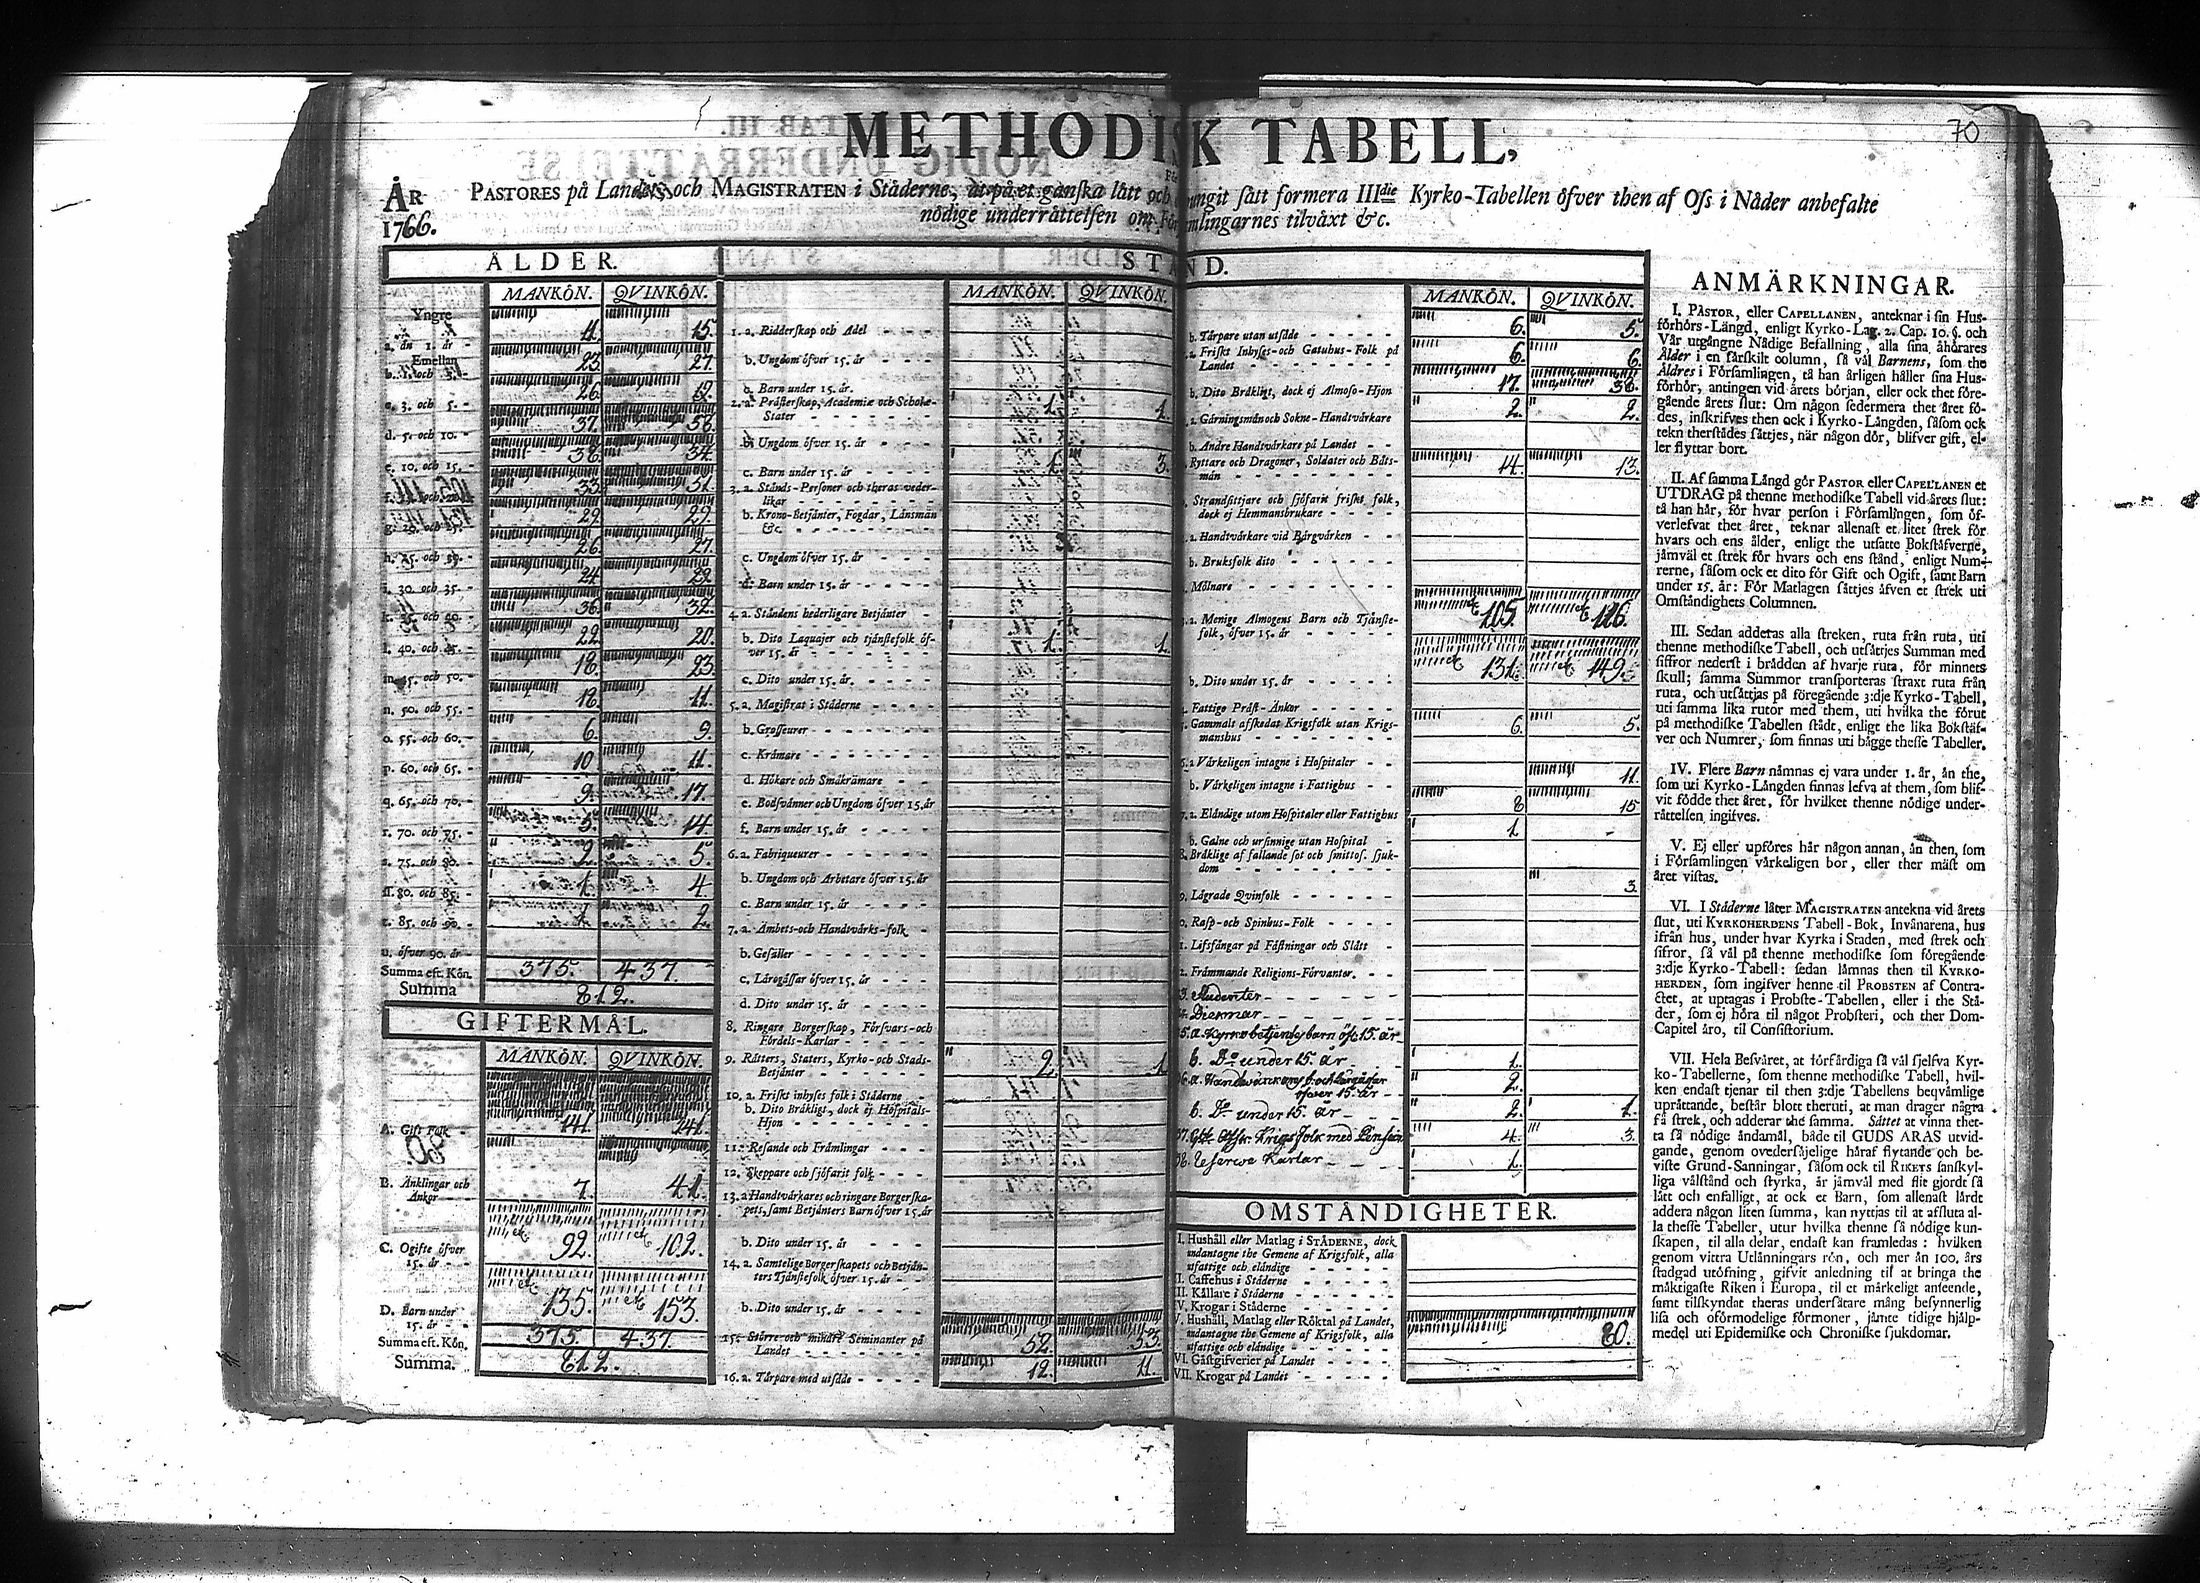 70
METHODISK TABELL,
ÅR
1766.
PASTORES på Landet, och MAGISTRATEN i Städerne, at på et ganska lätt och
sätt formera III die Kyrko-Tabellen öfver then af Oss i Nåder anbefalte
nödige underrättelsen om Församlingarnes tilväxt &c.
ÅLDER.
MANKÖN. QVINKÖN.
Yngre
a. än 1. år 11. 15.
Emellan
b. 1. och 3. 23. 27.
c. 3. och 5. 26.
d. 5. och 10. 37. 56.
e. 10. och 15. 38. 34.
33. 51.
g. 20. och 25. 29. 29.
h. 25. och 30. 26. 27.
i. 30. och 35. 24. 29.
k. 35. och 40. 36. 32.
l. 40. och 45. 22. 20.
m. 45. och 50. 18. 23.
n. 50. och 55. 18. 11.
o. 55. och 60. 6. 9.
p. 60. och 65. 10 11.
q. 65. och 70. 9. 17.
r. 70. och 75. 5. 14.
s. 75. och 80. 2. 5.
ss. 80. och 85. 1. 4.
t. 85. och 90. 1 2.
u. öfver 90. år
Summa eft. Kön. 375. 437.
Summa 812.
GIFTERMÅL.
MANKÖN. QVINKÖN.
A. Gift Folk 141. 141.
B. Änklingar och
Änkor 7. 41.
C. Ogifte öfver
15. år 92. 102.
D. Barn under
15. år 135. 153.
Summa eft. Kön. 375. 437.
Summa. 812.
STÅND.
MANKÖN. QVINKÖN.
1. a. Ridderskap och Adel
b. Ungdom öfver 15. år
c. Barn under 15. år.
2. a. Prästerskap, Academiæ och Scholæ-
Stater 1. 1.
b. Ungdom öfver 15. år
c. Barn under 15. år 1. 3.
3. a. Stånds-Personer och theras veder-
likar
b. Krono-Betjänter, Fogdar, Länsmän
&c.
c. Ungdom öfver 15. år
d. Barn under 15. år
4. a. Ståndens hederligare Betjänter
b. Dito Laquajer och tjänstefolk öf-
ver 15. år 1. 1.
c. Dito under 15. år.
5. a. Magistrat i Städerne
b. Grosseurer
c. Krämare
d. Hökare och Småkrämare
e. Bodsvänner och Ungdom öfver 15. år
f. Barn under 15. år
6. a. Fabriqueurer
b. Ungdom och Arbetare öfver 15. år
c. Barn under 15. år
7. a. Ämbets-och Handtvärks-folk
b. Gesäller
c. Lärogåssar öfver 15. år
d. Dito under 15. år
8. Ringare Borgerskap, Försvars-och
Fördels-Karlar
9. Rätters, Staters, Kyrko-och Stads-
Betjänter 2. 1.
10. a. Friskt inhyses folk i Städerne
b. Dito Bräkligt, dock ej Hospitals-
Hjon
11. Resande och Främlingar
12. Skeppare och sjöfarit folk
13. a Handtvärkares och ringare Borgerska-
pets, samt Betjänters Barn öfver 15. år
b. Dito under 15. år
14. a. Samtelige Borgerskapets och Betjän-
ters Tjänstefolk öfver 15. år
b. Dito under 15. år
15. Större och mindre Seminanter på
Landet 52. 53.
16. a. Tårpare med utsäde 12. 11.
MANKÖN. QVINKÖN.
b. Tårpare utan utsäde 6. 5.
a Friskt Inhyses-och Gatuhus-Folk på
Landet 6. 6.
b. Dito Bräkligt, dock ej Almoso-Hjon 17. 38.
a. Gärningsmän och Sokne-Handtvärkare 2. 2.
b. Andre Handtvärkare på Landet
Ryttare och Dragoner, Soldater och Båts-
män 14. 13.
Strandsittjare och sjöfarit friskt folk,
dock ej Hemmansbrukare
a. Handtvärkare vid Bärgvärken
b. Bruksfolk dito
Mölnare
a. Menige Almogens Barn och Tjänste-
folk, öfver 15. år 105. 116.
b. Dito under 15. år 131. 149.
Fattige Präst-Änkor
Gammalt afskedat Krigsfolk utan Krigs-
manshus 6. 5.
a Värkeligen intagne i Hospitaler
b. Värkeligen intagne i Fattighus 11.
a. Eländige utom Hospitaler eller Fattighus 8 15
b. Galne och ursinnige utan Hospital 1.
Bräklige af fallande sot och smittos. sjuk-
dom
Lägrade Qvinfolk 3.
Rasp-och Spinhus-Folk
Lifsfångar på Fästningar och Slätt
Främmande Religions-Förvanter.
Studenter
Diecknar
a. Kyrkobetjentes barn öf. 15. år
b. Do under 15. år 1.
2.
öfver 15. år
b. Do under 15. år 2. 1.
Krigs folk med Pension 4. 3.
Reserve Karlar 1.
OMSTÅNDIGHETER.
I. Hushåll eller Matlag i STÄDERNE, dock
undantagne the Gemene af Krigsfolk, alla
utfattige och eländige
II. Caffehus i Städerne
III. Källare i Städerne
IV. Krogar i Städerne
V. Hushåll, Matlag eller Röktal på Landet,
undantagne the Gemene af Krigsfolk, alla
utfattige och eländige 80.
VI. Gästgifverier på Landet
VII. Krogar på Landet
ANMÄRKNINGAR.
I. PASTOR, eller CAPELLANEN, anteknar i sin Hus-
förhörs-Längd, enligt Kyrko-Lag. 2. Cap. 10. §. och
Vår utgångne Nådige Befallning, alla sina åhörares
Ålder i en särskilt column, så väl Barnens, som the
Äldres i Församlingen, tå han årligen håller sina Hus-
förhör, antingen vid årets början, eller ock thet före-
gående årets slut: Om någon sedermera thet året fö-
des, inskrifves then ock i Kyrko-Längden, såsom ock
tekn therstädes sättjes, när någon dör, blifver gift, el-
ler flyttar bort.
II. Af samma Längd gör PASTOR eller CAPELLANEN et
UTDRAG på thenne methodiske Tabell vid årets slut:
tå han här, för hvar person i Församlingen, som öf-
verlefvat thet året, teknar allenast et litet strek för
hvars och ens ålder, enligt the utsatte Bokstäfverne,
jämväl et strek för hvars och ens stånd, enligt Num-
rerne, såsom ock et dito för Gift och Ogift, samt Barn
under 15. år: För Matlagen sättjes äfven et strek uti
Omständighets Columnen.
III. Sedan adderas alla streken, ruta från ruta, uti
thenne methodiske Tabell, och utsättjes Summan med
siffror nederst i brädden af hvarje ruta, för minnets
skull; samma Summor transporteras straxt ruta från
ruta, och utsättjas på föregående 3:dje Kyrko-Tabell,
uti samma lika rutor med them, uti hvilka the förut
på methodiske Tabellen städt, enligt the lika Bokstäf-
ver och Numrer, som finnas uti bägge thesse Tabeller.
IV. Flere Barn nämnas ej vara under 1. år, än the,
som uti Kyrko-Längden finnas lefva af them, som blif-
vit födde thet året, för hvilket thenne nödige under-
rättelsen ingifves.
V. Ej eller upföres här någon annan, än then, som
i Församlingen värkeligen bor, eller ther mäst om
året vistas.
VI. I Städerne låter MAGISTRATEN antekna vid årets
slut, uti KYRKOHERDENS Tabell-Bok, Invånarena, hus
ifrån hus, under hvar Kyrka i Staden, med strek och
sifror, så väl på thenne methodiske som föregående
3:dje Kyrko-Tabell: sedan lämnas then til KYRKO-
HERDEN, som ingifver henne til PROBSTEN af Contra-
ctet, at uptagas i Probste-Tabellen, eller i the Stä-
der, som ej höra til något Probsteri, och ther Dom-
Capitel äro, til Consistorium.
VII. Hela Besväret, at förfärdiga så väl sjelfva Kyr-
ko-Tabellerne, som thenne methodiske Tabell, hvil-
ken endast tjenar til then 3:dje Tabellens beqvämlige
uprättande, består blott theruti, at man drager några
få strek, och adderar the samma. Sättet at vinna thet-
ta så nödige ändamål, både til GUDS ÄRAS utvid-
gande, genom ovedersäjelige häraf flytande och be-
viste Grund-Sanningar, såsom ock til RIKETS sanskyl-
liga välstånd och styrka, är jämväl med flit gjordt så
lätt och enfalligt, at ock et Barn, som allenast lärdt
addera någon liten summa, kan nyttjas til at afsluta al-
la thesse Tabeller, utur hvilka thenne så nödige kun-
skapen, til alla delar, endast kan framledas: hvilken
genom vittra Utlänningars rön, och mer än 100. års
stadgad utöfning, gifvit anledning til at bringa the
mäktigaste Riken i Europa, til et märkeligt anseende,
samt tilskyndat theras undersåtare mång besynnerlig
lisa och oförmodelige förmoner, jämte tidige hjälp-
medel uti Epidemiske och Chroniske sjukdomar.